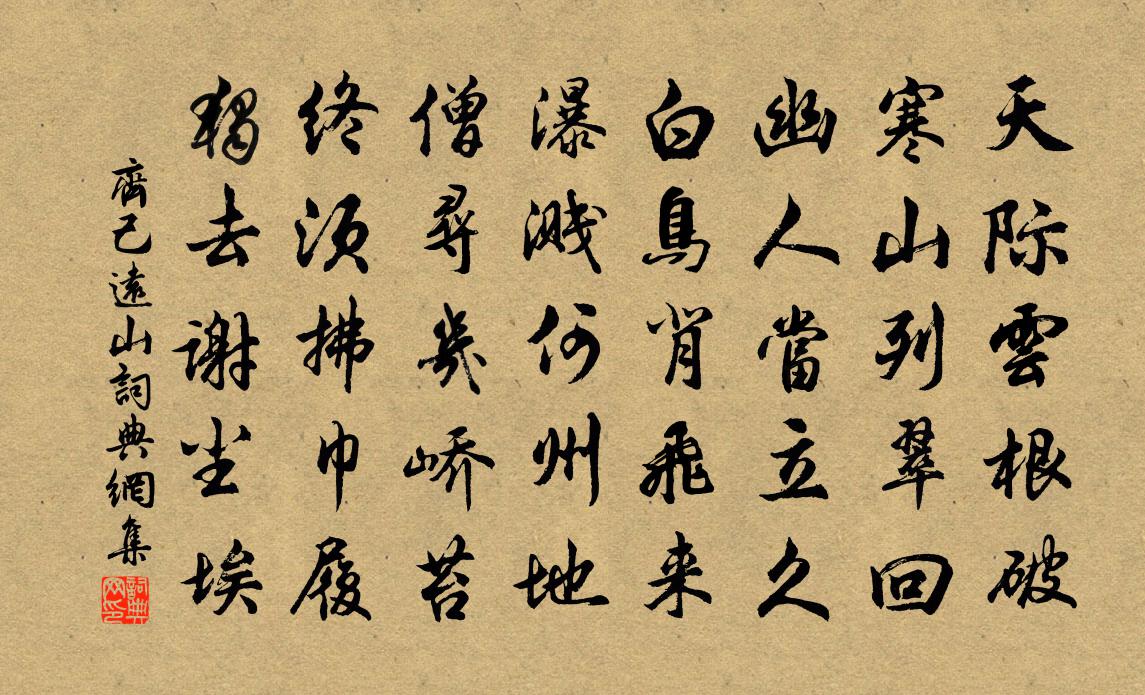 天际雲根破
寒山列翠回
幽人當立久
白鳥背飛来
瀑濺何州地
僧尋幾峤苔
终須拂巾履
獨去谢尘埃
齊己遠山詞典網集
詞典网印